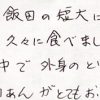 飯田の短大に
久々に食べまし
中で 外身のど
あんがとてもお